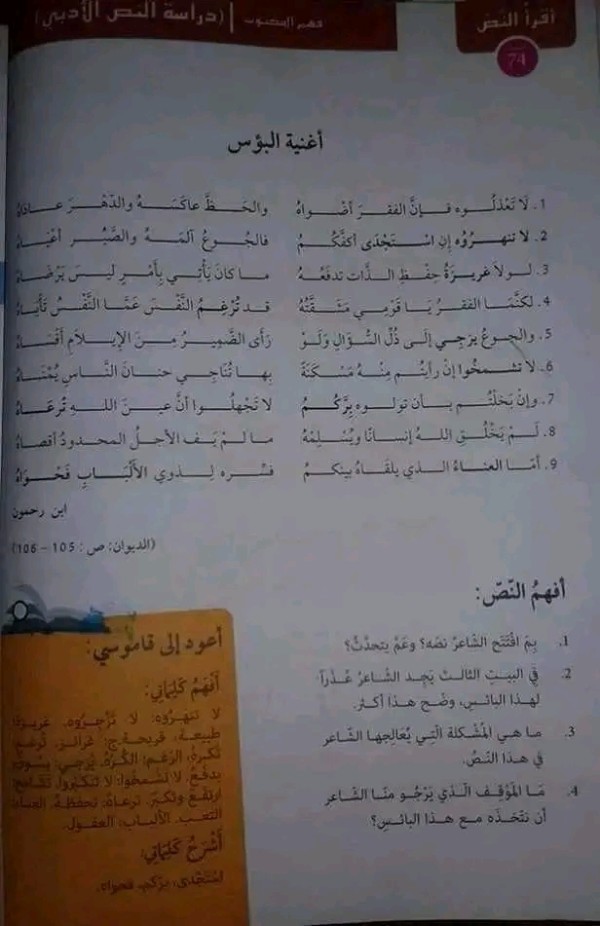 أقرأ النص
فهم المكتوب | (دراسة النص الأدبي)
74
أغنية البؤس
1. لَا تَعْذلُـــوه فـإنَّ الفقـرَ أضْـواهُ والحَـظَّ عاكَسَـهُ والدّهْـرَ عـاداهُ
2. لا تنهـرُوُه إن اسْتَجْدَى أكفَّكُـم فالجُـوعُ آلمَـهُ والصَّبْـر أعْيَـاهُ
3. لـولا غريـزةُ حِفْـظِ الـذَّات تدفَعُـهُ مـا كـانَ يَأْتِـي بِأَمْـرٍ ليـسَ يَرْضَـاهُ
4. لكنَّمَـا الفقـرُ يَـا قَوْمِـي مَشَـقَّتُهُ قـد تُرْغِـمُ النَّفْـسَ عَمَّـا النَّفْـسُ تَأْبَـاهُ
5. والجـوعُ يزجِـي إلى ذُلِّ السُّـؤَالِ وَلَـوْ رَأى الضَّمِيـرُ مِـنَ الإيـلَامِ أَقْسَـاهُ
6. لا تشـمخُوا إنْ رأيتُـم مِنْـهُ مَسْـكَنَةً بِهـا تُنَاجِـي حنـانَ النَّـاسِ يُمْنَـاهُ
7. وإنْ بَخَلْتُـم بـأن تولـوه بِرَّكُـم لا تَجْهلُـوا أنَّ عيـنَ اللـهِ تُرعَـاهُ
8. لَـمْ يَخْلُـقِ اللـهُ إنسـانًا ويُسْـلِمْهُ مـا لـمْ يَـف الأجـلُ المحـدودُ أقصـاهُ
9. أمّـا العنـاءُ الـذي يلقَـاهُ بينكـمُ فسُـره لِـذوي الألْبَـابِ فَحْـوَاهُ
ابن رحمون
(الديوان: ص : 105 – 106)
أفهمُ النّصّ:
1. بِمَ افْتَتَح الشاعرُ نصَه؟ وعَمَّ يتحدّثُ؟
2. في البيتِ الثالث يَجِد الشاعرُ عُذراً
لهذا البائسِ، وضّح هذا أكثر.
3. ما هي المُشكلة الّتِي يُعالِجها الشّاعر
في هذا النّصّ.
4. مَا المَوْقِف الّذي يَرْجُو منّا الشّاعر
أن نتّخذه مع هذا البائس؟
أعود إلى قاموسي:
أَفْهَمُ كَلِمَاتِي:
لا تنهرُوُه: لا تَزْجُروه. غريزة
طبيعة، قريحة.ج: غرائز. تُرغم:
تُكرهُ، الرّغم: الكُرهُ. يُزجي: يسوق،
يدفعُ. لا تشمخُوا: لا تتكبّروا، تشامخ:
ارتفع وتكبّر. ترعاهُ: تحفظهُ. العناء:
التعب. الألباب: العقول.
أَشْرَحُ كَلِمَاتِي:
اِسْتَجْدَى، بِرّكم، فحواه.